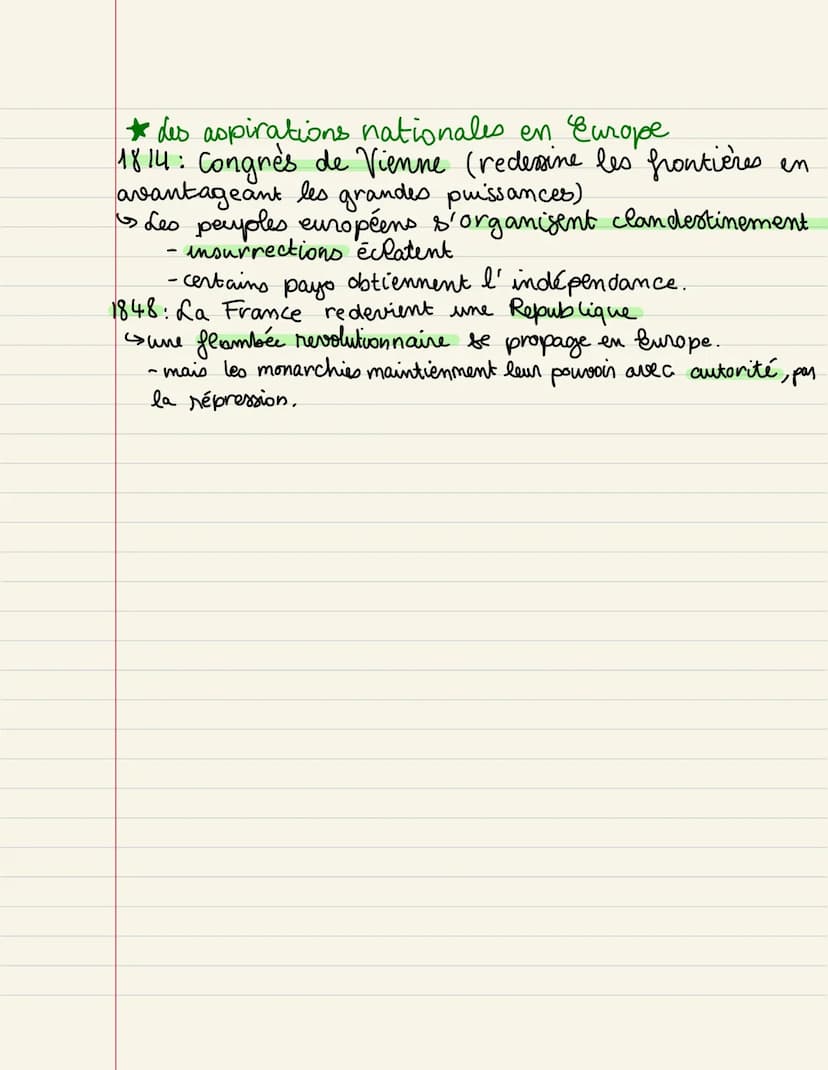 ★ des aspirations nationales en Europe
1814 : Congrès de Vienne (redessine les frontières en
avantageant les grandes puissances)
↳ Les peuples européens s'organisent clandestinement
- insurrections éclatent
- certains pays obtiennent l'indépendance.
1848 : La France redevient une Republique
↳ une flambée revolutionnaire se propage en Europe.
- mais les monarchies maintiennent leur pouvoir avec autorité, par
la répression.